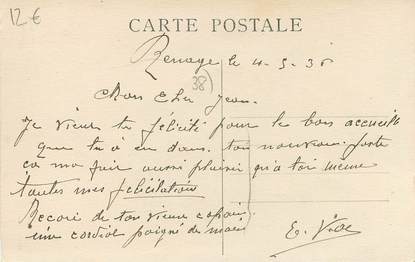 12€
CARTE POSTALE
Renage le 4.5.35
38
Mon Cher Jean.
Je viens te félicité pour le bon accueil
que tu à eu dans ton nouveau poste
ca ma fair aussi plaisir qu'a toi meme
toutes mes félicitations
Recois de ton vieux copain
une cordial poigné de main
E.